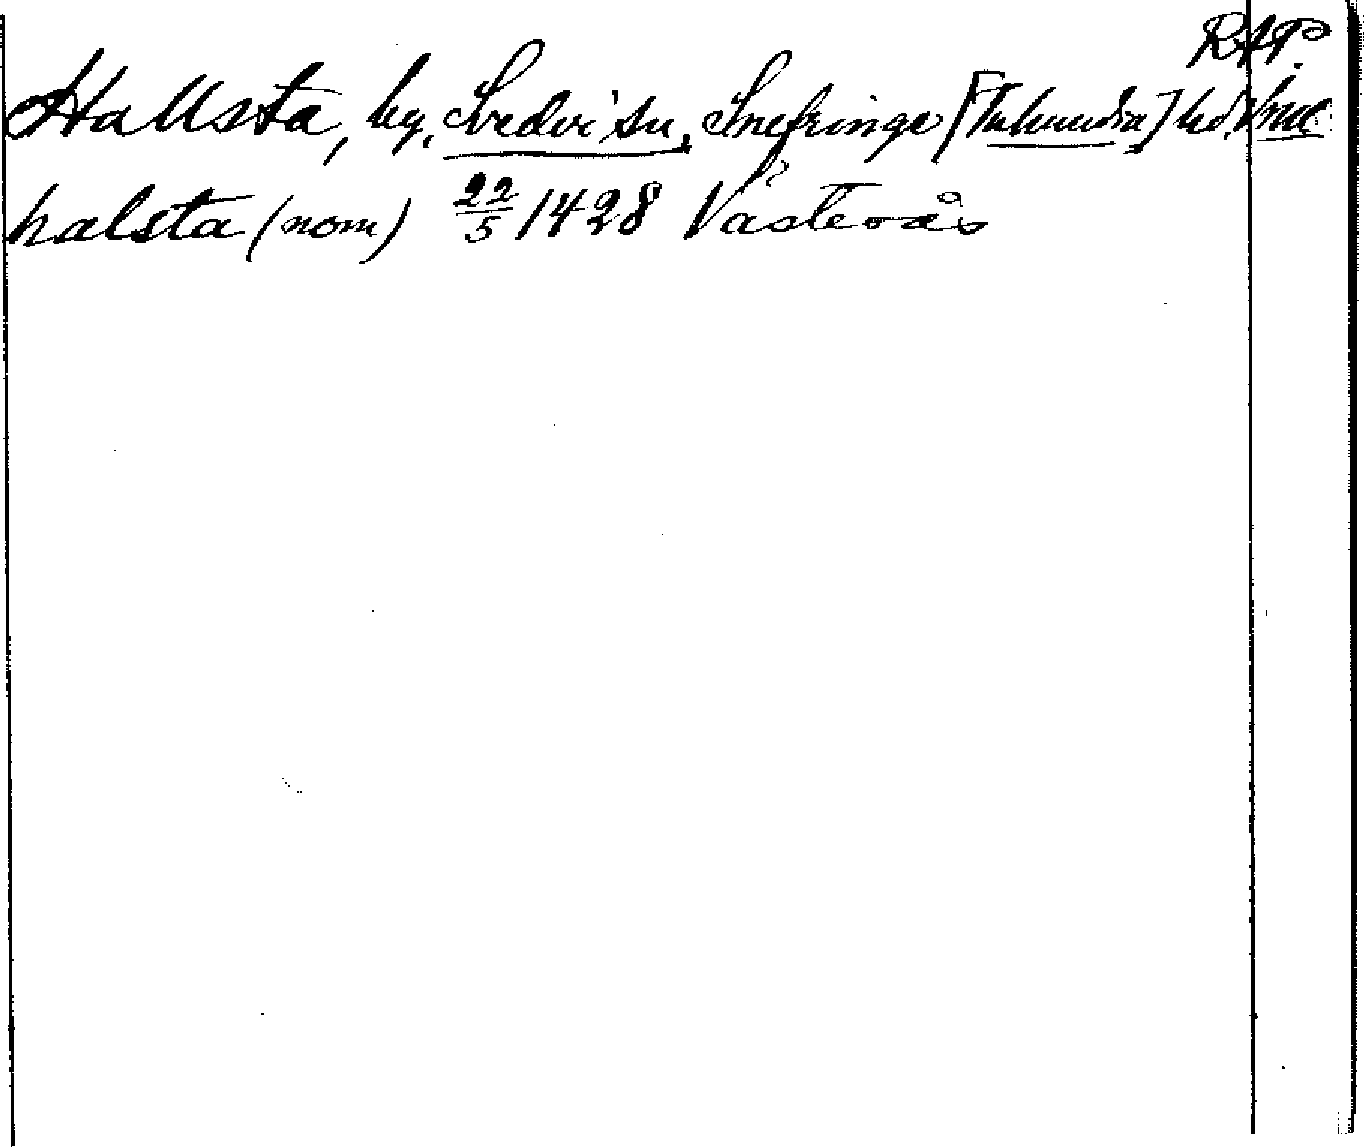 RAP.
Hallsta, by, Svedvi sn, Snefringe [Tuhundra] hd, Vml
halsta (nom) 22/5 1428 Västerås